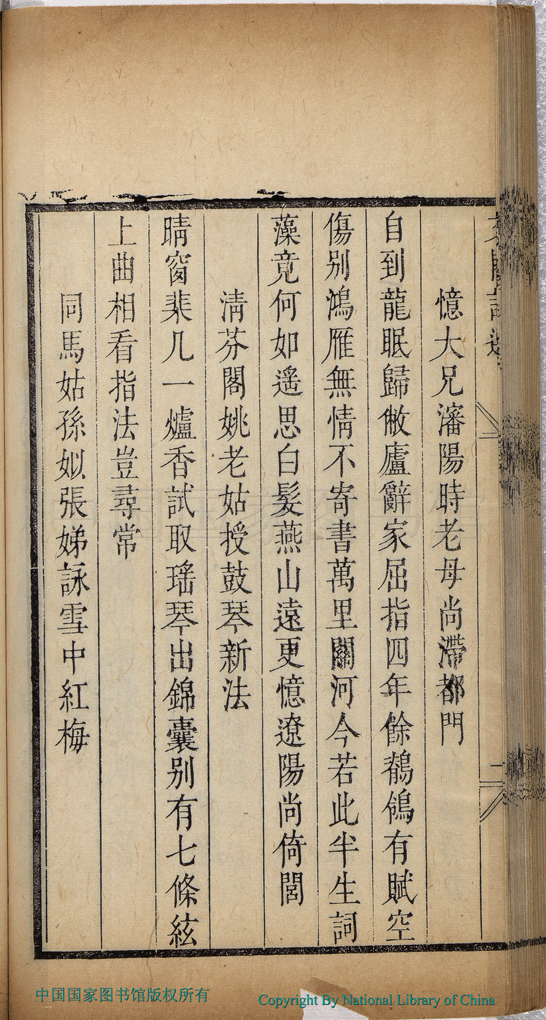 憶大兄瀋陽時老母尚滯都門
自到龍眠歸敝廬辭家屈指四年餘鶺鴒有賦空
傷别鴻雁無情不寄書萬里關河今若此半生詞
藻竟何如遥思白髮燕山遠更憶遼陽尚倚閭
清芬閣姚老姑授鼓琴新法
晴窗棐几一爐香試取瑶琴出錦囊别有七條絃
上曲相看指法豈尋常
同馬姑孫姒張娣詠雪中紅梅
中国国家图书馆版权所有
Copyright By National Library of China